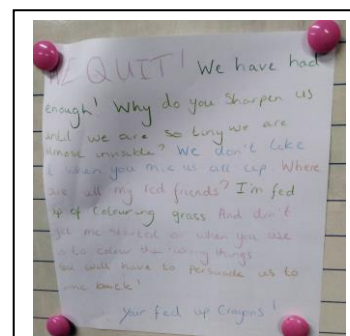 WE QUIT! We have had
enough! Why do you Sharpen us
until we are so tiny we are
almost invisable? We don't like
it when you mix us all up Where
are all my red friends? I'm fed
up of Colouring grass And don't
get me started on when you use
us to colour the wrong things
You will have to persuade us to
come back!
Your fed up Crayons!